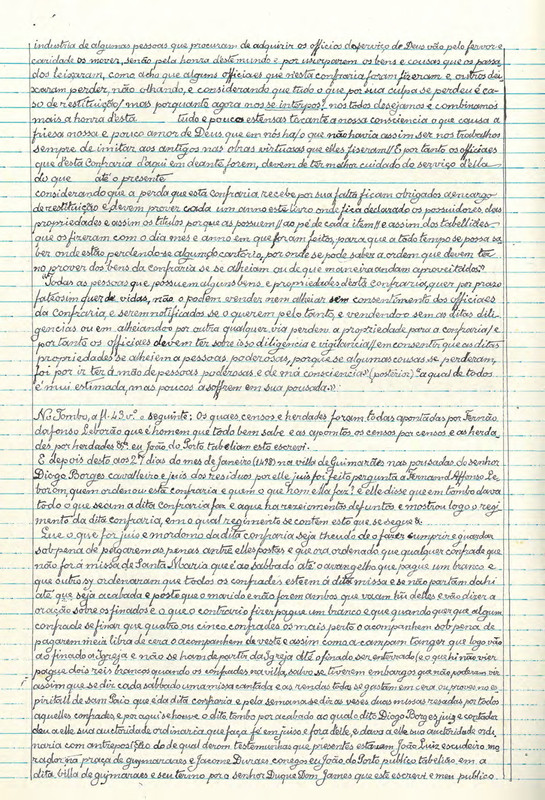 industria de algumas pessoas que procuram de adquirir os officios do serviço de Deus vão pelo fervor e
caridade os mover, senão pela honra deste mundo e por usurparem os bens e cousas que os passa
dos leixaram, como acho que alguns officiaes que n'esta confraria foram fizeram e outros lei-
xaram perder, não olhando, e considerando que tudo o que por sua culpa se perdeu é ca-
so de restituição/ mas porquanto agora nos se interpos? nos todos desejamos e combinamos
mais a honra desta tudo e poucos estensas tocante a nossa consciencia o que causa a
friesa nossa e pouco amor de Deus que em nós ha/ o que não havia assim ser nos trabalhos
sempre de imitar aos antigos nas obras virtuosas que elles fizeram// E por tanto os officiaes
que d'esta Confraria d'aqui em deante forem, devem de ter melhor cuidado do serviço d'ella
do que até o presente
considerando que a perda que esta confraria recebe por sua falta ficam obrigados a encargo
de restituição e devem prover cada um anno este livro onde fica declarado os possuidores das
propriedades e assim os titulos porque as possuem// ao pé de cada item// e assim dos tabelliães
que os fizeram com o dia mes e anno em que foram feitos, para que a todo tempo se possa sa
ber onde estão perdendo-se algum do cartorio, por onde se pode saber a ordem que devem ter
no prover dos bens da confraria se se alheiam ou de que maneira andam aproveitados."
"Todas as pessoas que possuem alguns bens e propriedades desta confraria quer por prazo
fateosim quer de vidas, não o podem vender nem alhear sem consentimento dos officiaes
da confraria e serem notificados se o querem pelo tanto, e vendendo-o sem as ditas dili
gencias ou em alheiando-o por outra qualquer via perdem a propriedade para a confraria/ e
por tanto os officiaes devem ter sobre isso diligencia e vigilancia// em consentir que as ditas
propriedades se alheiem a pessoas poderosas, porque se algumas cousas se perderam,
foi por ir ter á mão de pessoas poderosas, e de má consciencias" (posterior) "a qual de todos
é mui estimada, mas poucos a soffrem em sua pousada.":
No Tombo, a fl. 43 v.º o seguinte: Os quaes censos e herdades foram todas apontadas por Fernão
da fonso Leborão que é homem que todo bem sabe e as apontos os censos por censos e as herda
des por herdades &.ª eu João do Porto tabeliam esto escrevi.
E depois desto aos 2? dias do mes de Janeiro (1498) na villa de Guimarães nas pousadas do senhor
Diogo Borges cavalleiro e juis dos residuos por elle juis foi feito pergunta a Fernand Affonso Le
borom, quem ordenou esta confraria e quem o que hom ella faz? e elle disse que em tombo dava
todo o que se cum a dita confraria faz e a que ha rezeimentos defuntos e mostrou logo o regi
mento da dita confraria, em o qual regimento se contem esto que se segue &:
Que o que for juis e mordomo da dita confraria seja theudo de o fazer cumprir e guardar
sob pena de pagarem as penas antre elles postas e que ora ordenado que qualquer confrade que
não for á missa de Santa Maria que é ao sabbado até o avangelho que pague um branco e
que outro sy ordenaram que todos os confrades esteem á dita missa e se não partam dahi
até que seja acabada e posto que o marido e não forem ambos que vaam hũ delles e vão dizer a
oração sobre os finados e o que o contrario fizer pague um branco e que quando quer que algum
confrade se finar que quatro ou cinco confrades os mais perto o acompanhem sob pena de
pagarem meia libra de cera o acompanhem de veste e assim como a campam tanger que logo vão
ao finado a Igreja e não se ham de partir da Igreja até o finado ser enterrado (e o que hi não vier
pague dois reis brancos quando os confrades na villa, salvo se tiverem embargos que não poderem vir
assim que se diz cada sabbado uma missa cantada e as rendas todas se gastam em cera ou prove no es
pirital de sam Paio que é da dita confraria e pela semana se diz as vezes duas missas resadas por todos
aquelles confrades, e por aqui se houve o dito tombo por acabado ao qual o dito Diogo Borges juis e contador
deu a elle sua auctoridade ordinaria que faça fé em juiso e fora delle, e dava a elle sua autoridade ordi
naria com antreposição do de qual derom testemunhas que presentes estavam João Luiz escudeiro mo
rador na praça de guimaraes e Jacome Duraes conego eu João do Porto publico tabelião em a
dita billa de guimaraes e seu termo por o senhor Duque Dom James que este escrevi e meu publico